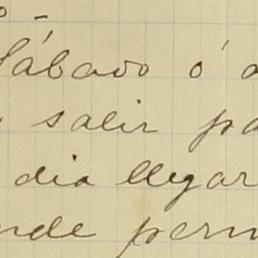 Sábado ó a
salir pa
dia llegar
nde perm